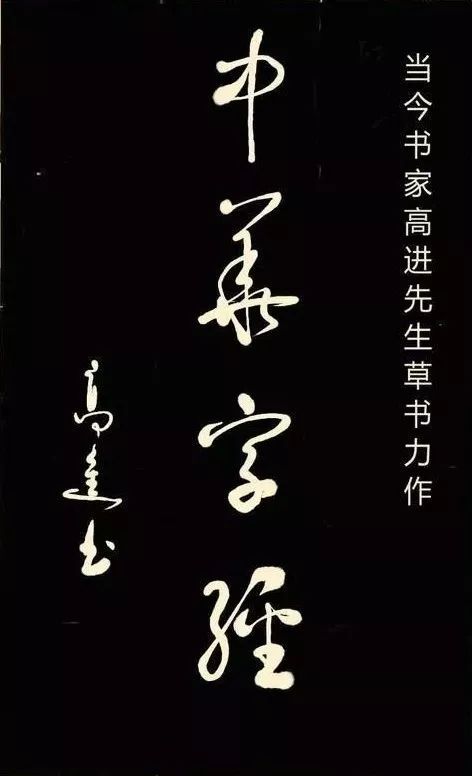 当今书家高进先生草书力作
中華字經
高進书